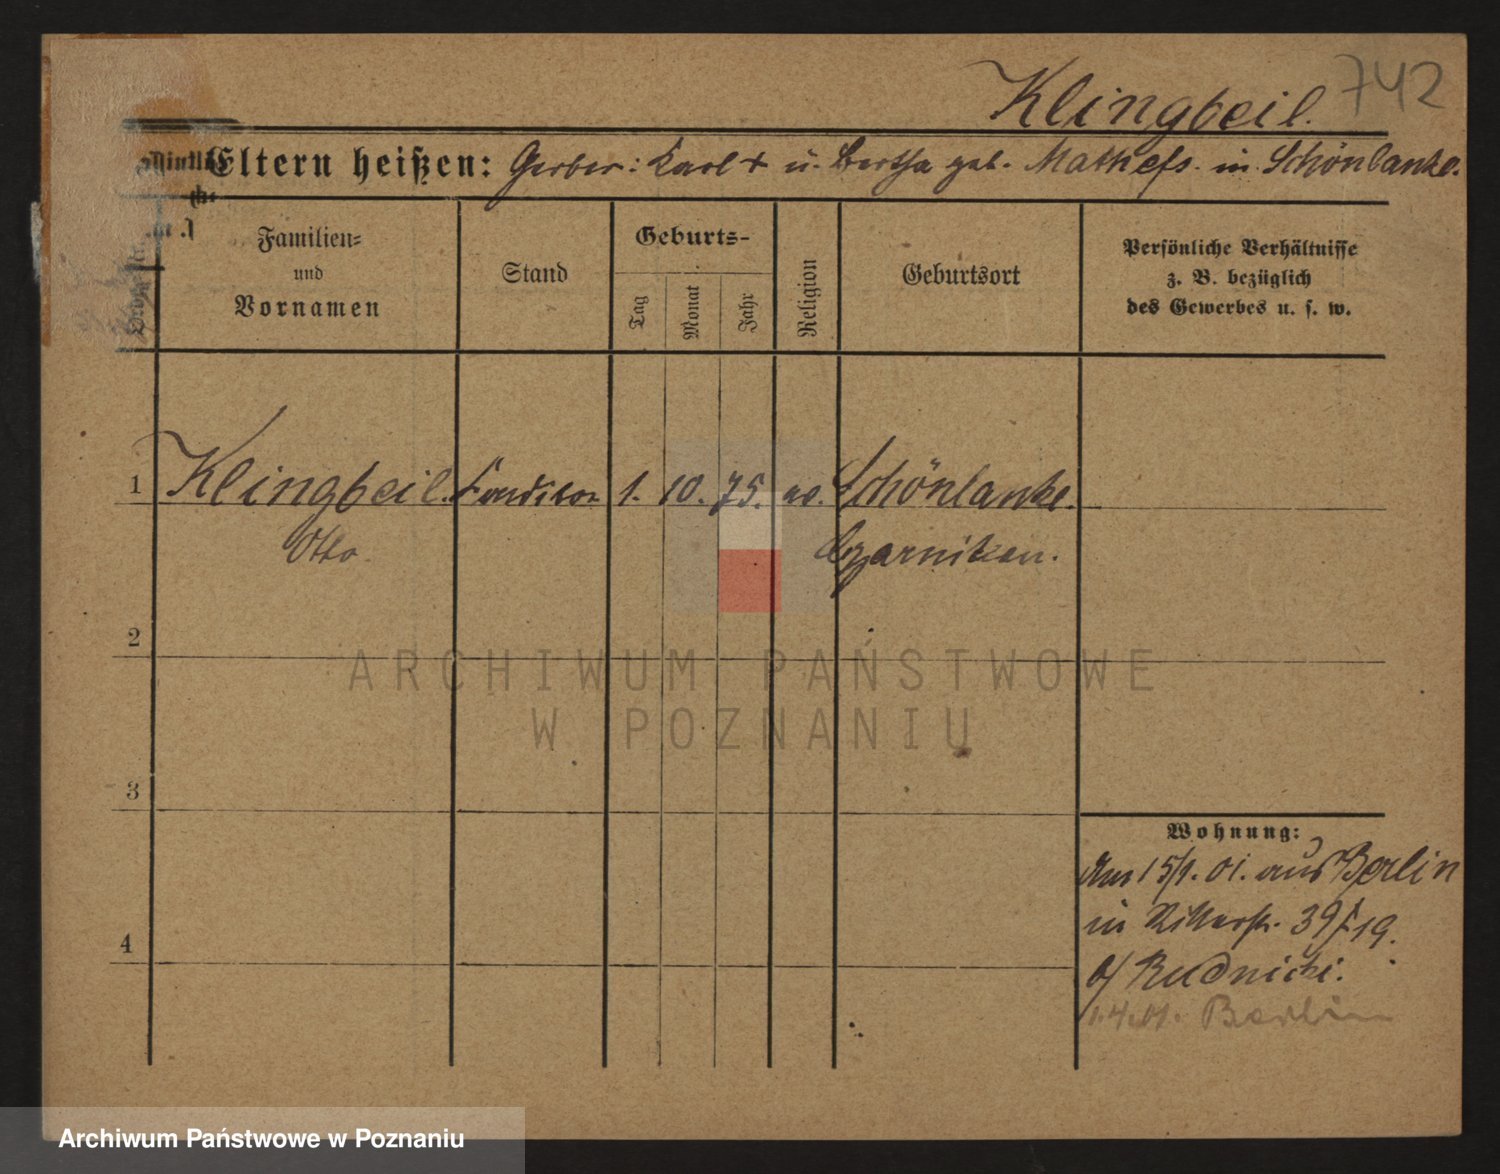 742
Klingbeil.
Eltern heißen: Gerber: Karl + u. Bertha geb. Mathefs. in Schönlanke.
Familien-
und
Vornamen
Stand
Geburts-
Tag
Monat
Jahr
Religion
Geburtsort
Persönliche Verhältnisse
z. B. bezüglich
des Gewerbes u. s. w.
1 Klingbeil. 1. 10. 75. ev. Schönlanke.
Otto. Czarnikau.
2
ARCHIWUM PAŃSTWOWE
W POZNANIU
3
Wohnung:
Am 15/1. 01. aus Berlin
in Ritterstr. 39 I 19.
4
b/ Rudnicki.
1.4.01. Berlin
Archiwum Państwowe w Poznaniu